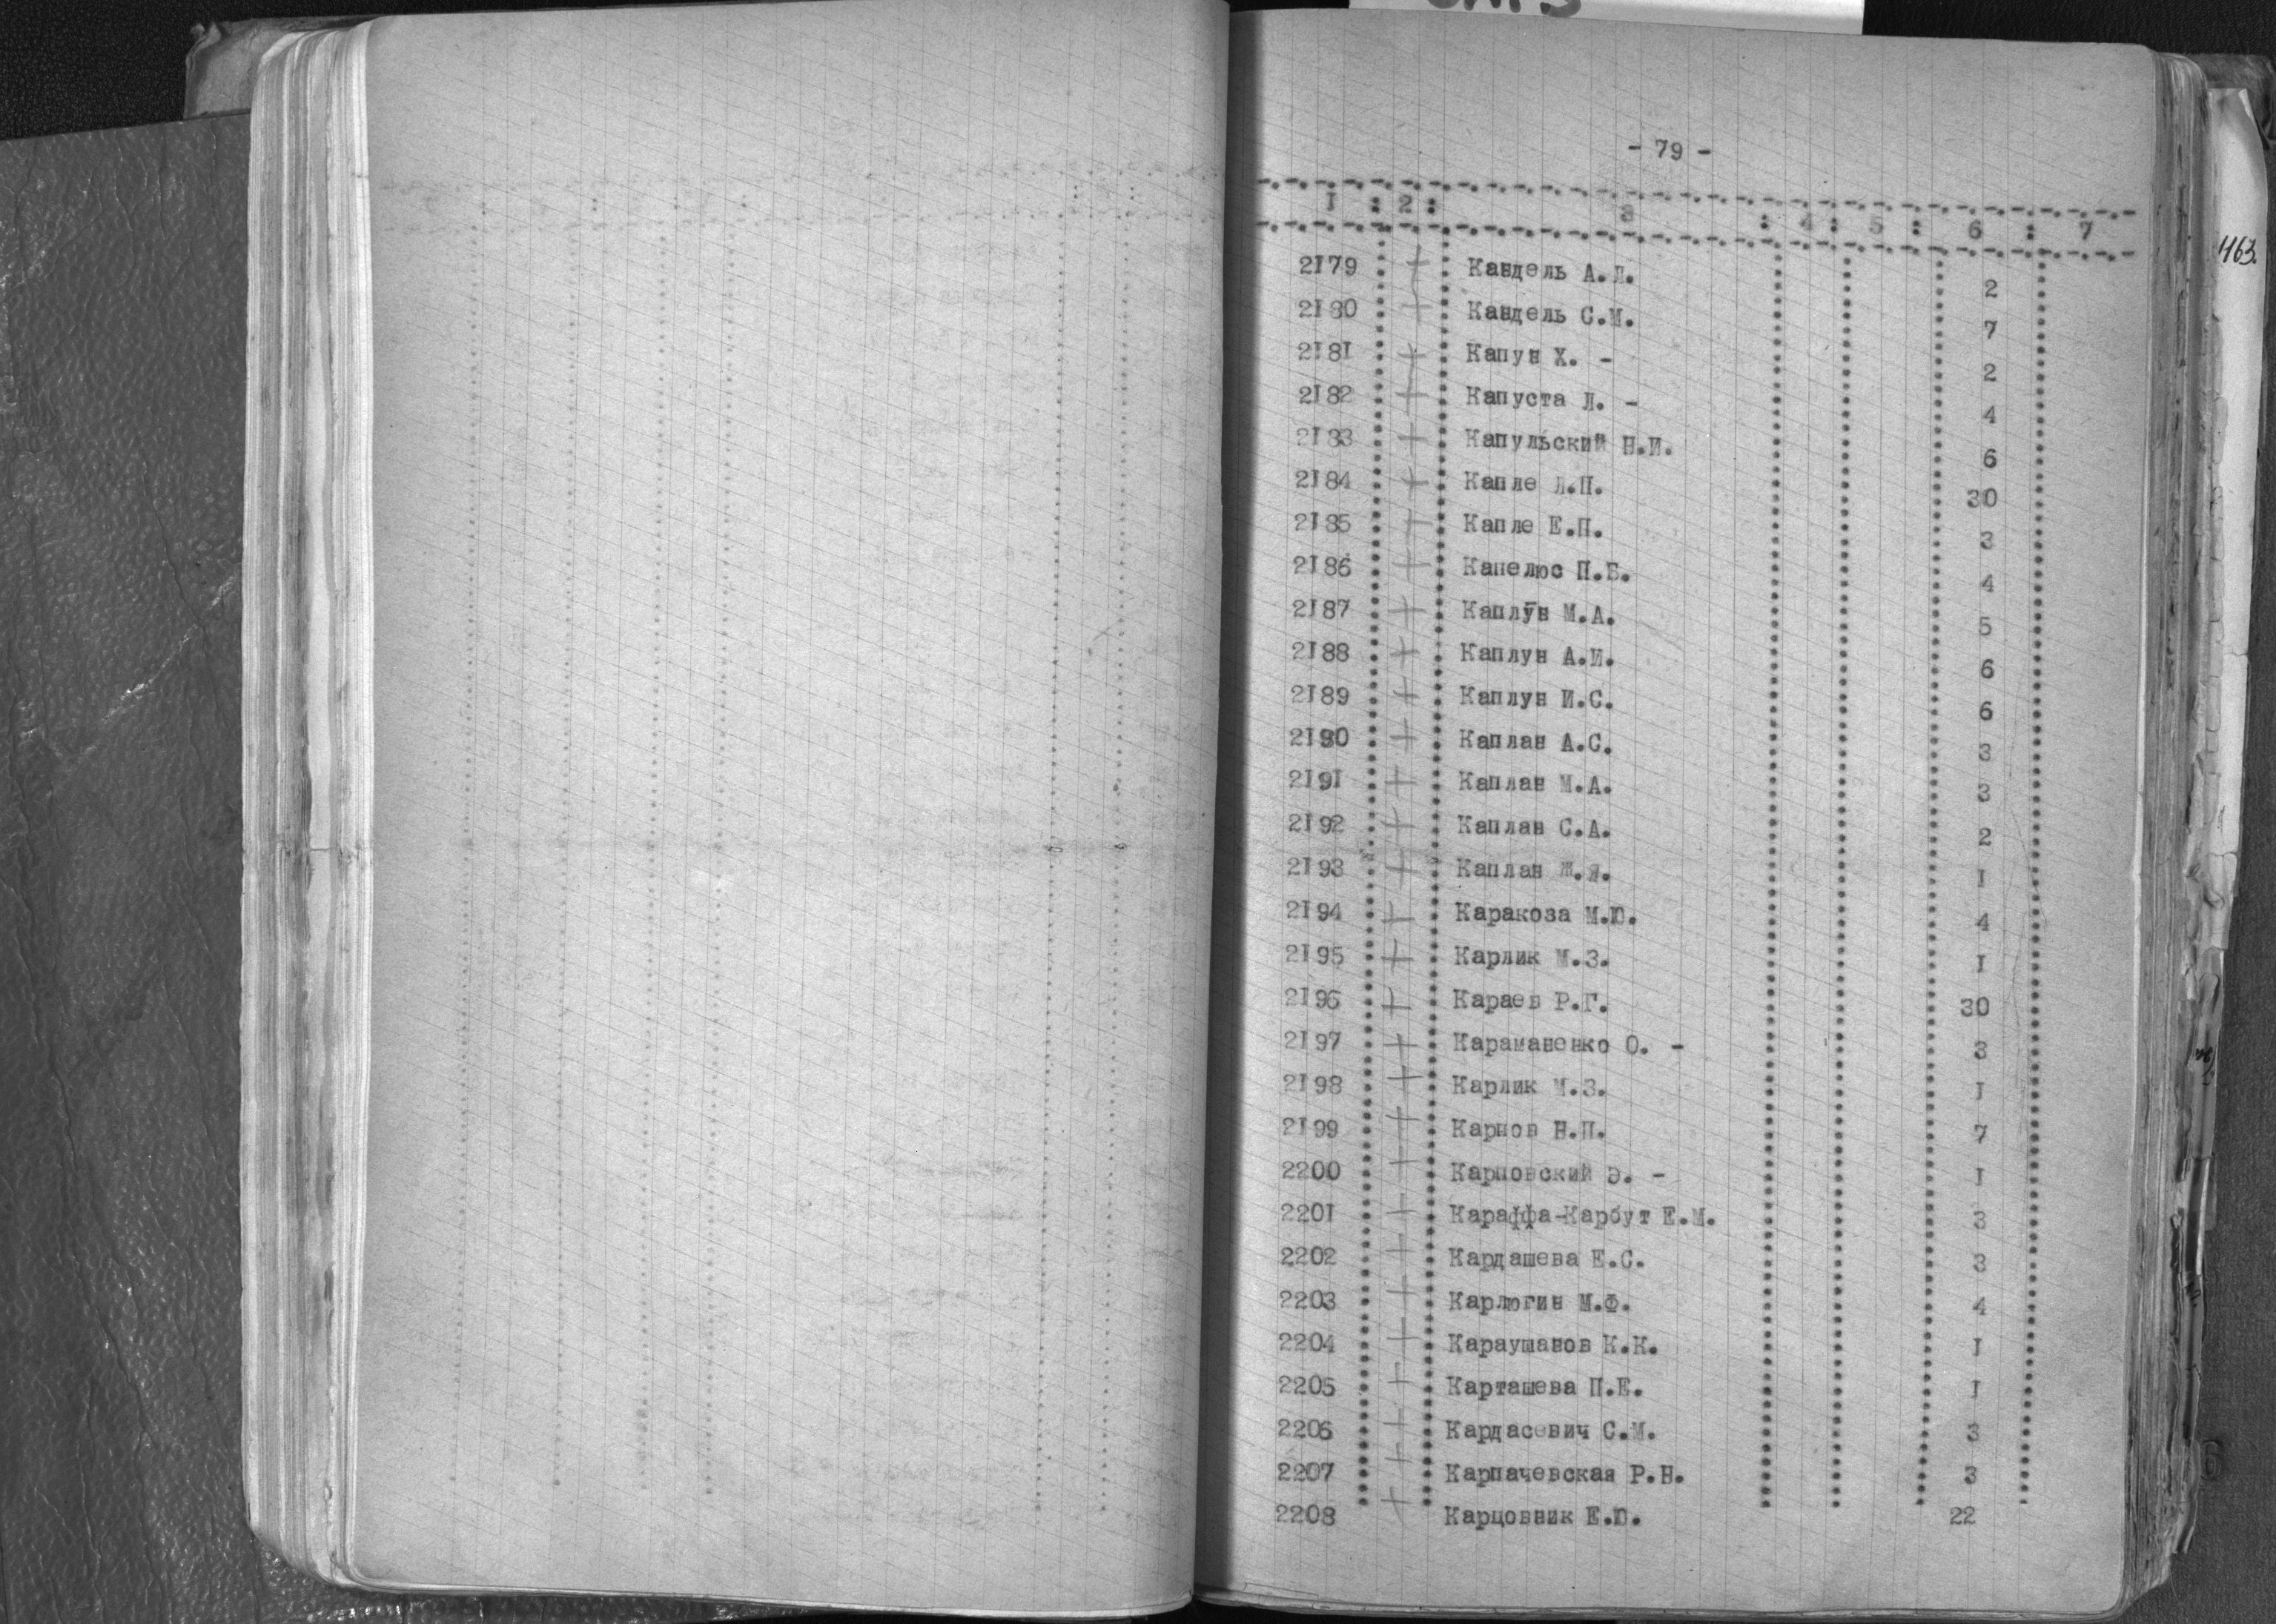 - 79 -
I : 2 : 3 : 4 : 5 : 6 : 7
463.
2I79 + Кандель А.Л. 2
2I80 + Кандель С.М. 7
2I8I + Капун Х. - 2
2I82 + Капуста Л. - 4
2I83 + Капульский Н.И. 6
2I84 + Капле Л.П. 30
2I85 + Капле Е.П. 3
2I86 + Капелюс П.Б. 4
2I87 + Каплун М.А. 5
2I88 + Каплун А.И. 6
2I89 + Каплун И.С. 6
2I90 + Каплан А.С. 3
2I9I + Каплан М.А. 3
2I92 + Каплан С.А. 2
2I93 + Каплан Ж.Я. I
2I94 + Каракоза М.Ю. 4
2I95 + Карлик М.З. I
2I96 + Караев Р.Г. 30
2I97 + Караманенко О. - 3
2I98 + Карлик М.З. I
2I99 + Карпов Н.П. 7
2200 + Карповский Э. - I
220I + Караффа-Карбут Е.М. 3
2202 + Кардашева Е.С. 3
2203 + Карлюгин М.Ф. 4
2204 + Караушанов К.К. I
2205 + Карташева П.Е. I
2206 + Кардасевич С.М. 3
2207 + Карпачевская Р.Н. 3
2208 + Карцовник Е.Ю. 22